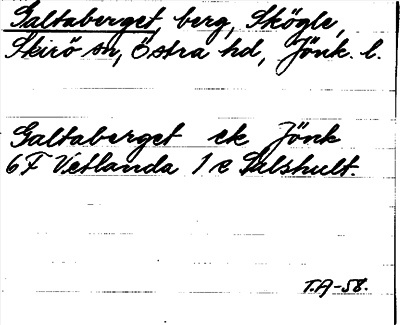 Galtaberget, berg, Skögle,
Skirö sn, Östra hd, Jönk. l.
Galtaberget ek Jönk
6F Vetlanda 1 e Salshult.
T.A-58.